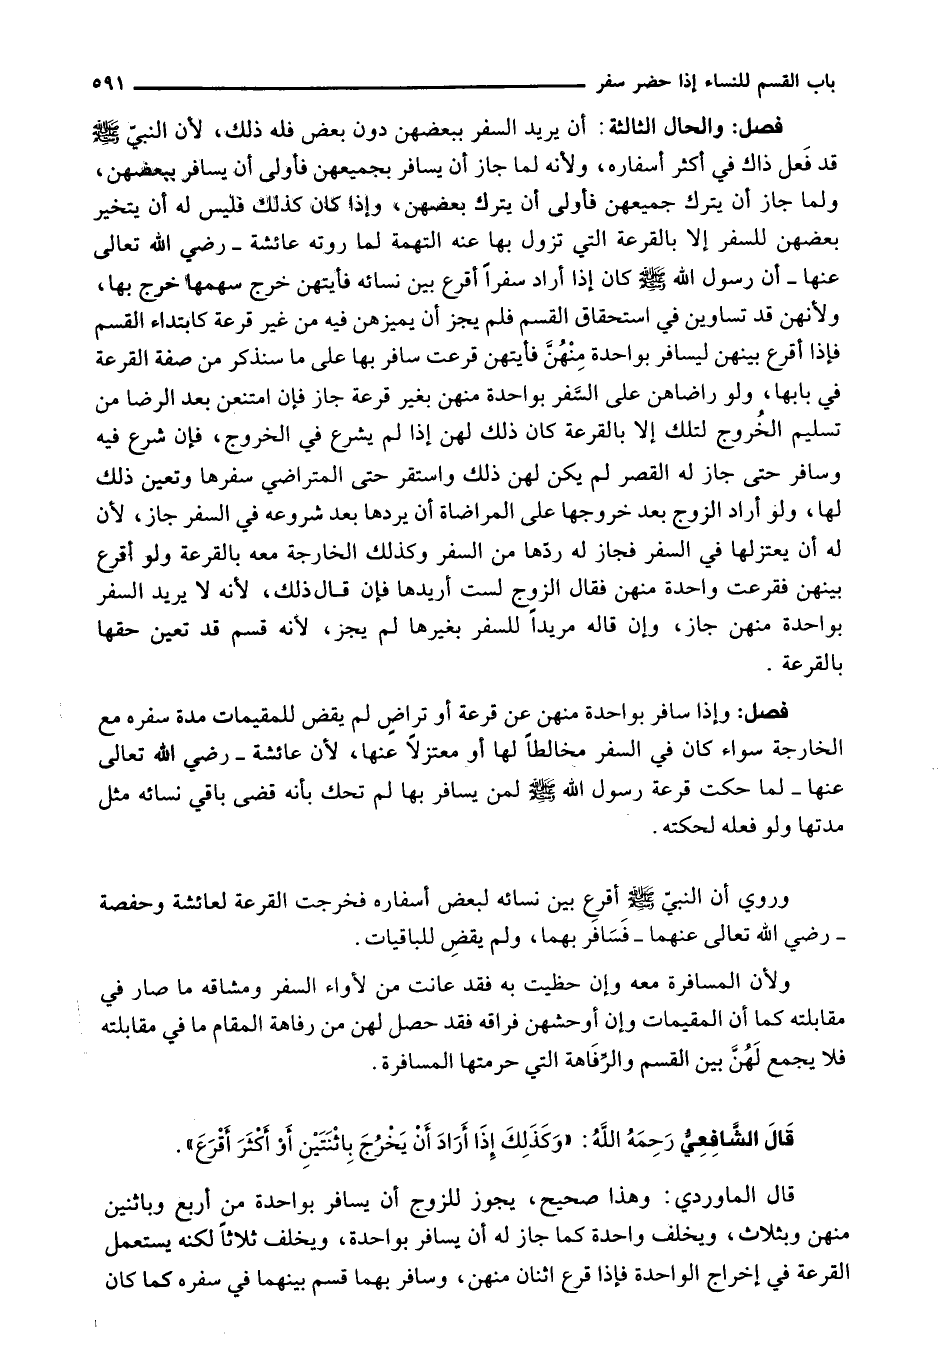 باب القسم للنساء إذا حضر سفر ٥٩١
فصل: والحال الثالثة: أن يريد السفر ببعضهن دون بعض فله ذلك، لأن النبيّ ﷺ
قد فَعل ذاك في أكثر أسفاره، ولأنه لما جاز أن يسافر بجميعهن فأولى أن يسافر ببعضهن،
ولما جاز أن يترك جميعهن فأولى أن يترك بعضهن، وإذا كان كذلك فليس له أن يتخير
بعضهن للسفر إلا بالقرعة التي تزول بها عنه التهمة لما روته عائشة ـ رضي الله تعالى
عنها ـ أن رسول الله ﷺ كان إذا أراد سفراً أقرع بين نسائه فأيتهن خرج سهمها خرج بها،
ولأنهن قد تساوين في استحقاق القسم فلم يجز أن يميزهن فيه من غير قرعة كابتداء القسم
فإذا أقرع بينهن ليسافر بواحدة مِنْهُنَّ فأيتهن قرعت سافر بها على ما سنذكر من صفة القرعة
في بابها، ولو راضاهن على السَّفر بواحدة منهن بغير قرعة جاز فإن امتنعن بعد الرضا من
تسليم الخُروج لتلك إلا بالقرعة كان ذلك لهن إذا لم يشرع في الخروج، فإن شرع فيه
وسافر حتى جاز له القصر لم يكن لهن ذلك واستقر حتى المتراضي سفرها وتعين ذلك
لها، ولو أراد الزوج بعد خروجها على المراضاة أن يردها بعد شروعه في السفر جاز، لأن
له أن يعتزلها في السفر فجاز له ردّها من السفر وكذلك الخارجة معه بالقرعة ولو أقرع
بينهن فقرعت واحدة منهن فقال الزوج لست أريدها فإن قال ذلك، لأنه لا يريد السفر
بواحدة منهن جاز، وإن قاله مريداً للسفر بغيرها لم يجز، لأنه قسم قد تعين حقها
بالقرعة .
فصل: وإذا سافر بواحدة منهن عن قرعة أو تراضٍ لم يقض للمقيمات مدة سفره مع
الخارجة سواء كان في السفر مخالطاً لها أو معتزلاً عنها، لأن عائشة ـ رضي الله تعالى
عنها ـ لما حكت قرعة رسول الله ﷺ لمن يسافر بها لم تحك بأنه قضى باقي نسائه مثل
مدتها ولو فعله لحكته.
وروي أن النبيّ ﷺ أقرع بين نسائه لبعض أسفاره فخرجت القرعة لعائشة وحفصة
ـ رضي الله تعالى عنهما ـ فَسَافَر بهما، ولم يقضِ للباقيات.
ولأن المسافرة معه وإن حظيت به فقد عانت من لأواء السفر ومشاقه ما صار في
مقابلته كما أن المقيمات وإن أوحشهن فراقه فقد حصل لهن من رفاهة المقام ما في مقابلته
فلا يجمع لَهُنَّ بين القسم والرِّفَاهة التي حرمتها المسافرة.
قَالَ الشَّافِعِيُّ رَحِمَهُ اللَّهُ: «وَكَذَلِكَ إِذَا أَرَادَ أَنْ يَخْرُجَ بِاثْنَتَيْنِ أَوْ أَكْثَرَ أَقْرَعَ».
قال الماوردي: وهذا صحيح، يجوز للزوج أن يسافر بواحدة من أربع وباثنين
منهن وبثلاث، ويخلف واحدة كما جاز له أن يسافر بواحدة، ويخلف ثلاثاً لكنه يستعمل
القرعة في إخراج الواحدة فإذا قرع اثنان منهن، وسافر بهما قسم بينهما في سفره كما كان